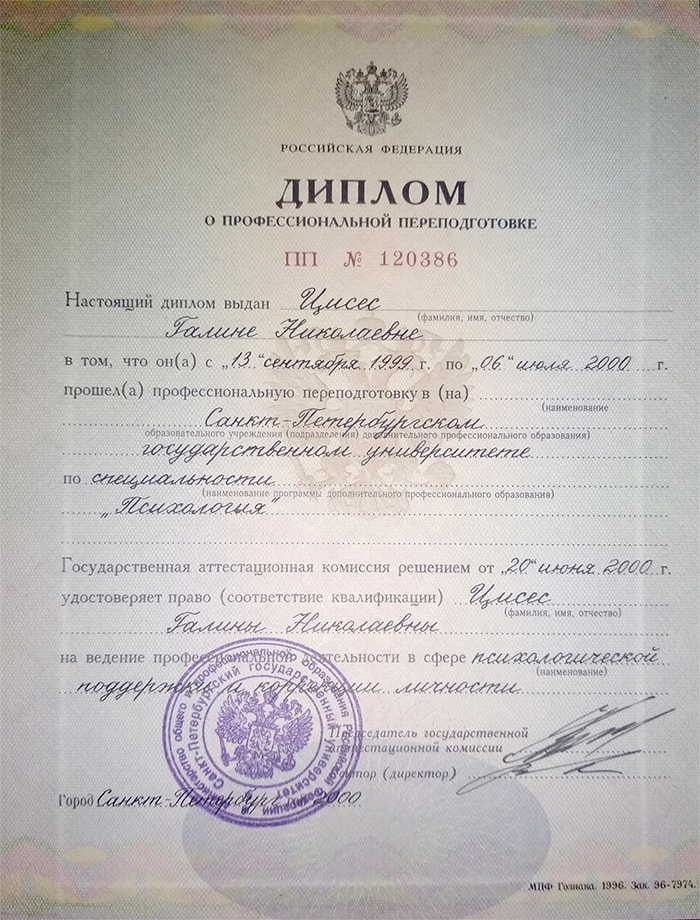 РОССИЙСКАЯ ФЕДЕРАЦИЯ
ДИПЛОМ
О ПРОФЕССИОНАЛЬНОЙ ПЕРЕПОДГОТОВКЕ
ПП № 120386
Настоящий диплом выдан Цисес
(фамилия, имя, отчество)
Галине Николаевне
в том, что он(а) с „13“ сентября 1999 г. по „06“ июля 2000 г.
прошел(а) профессиональную переподготовку в (на)
(наименование
Санкт-Петербургском
образовательного учреждения (подразделения) дополнительного профессионального образования)
государственном университете
по специальности
(наименование программы дополнительного профессионального образования)
„Психология“
Государственная аттестационная комиссия решением от „20“ июня 2000 г.
удостоверяет право (соответствие квалификации) Цисес
(фамилия, имя, отчество)
Галины Николаевны
на ведение профессиональной деятельности в сфере психологической
(наименование)
поддержки и коррекции личности
Председатель государственной
аттестационной комиссии
Ректор (директор)
Санкт-Петербургский государственный университет
Город Санкт-Петербург 2000
МПФ Гознака. 1996. Зак. 96-7974.